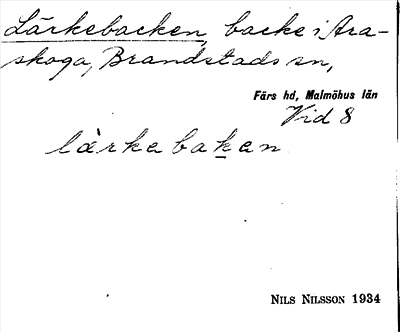 Lärkebacken, backe i Ara-
skoga, Brandstads sn,
Färs hd, Malmöhus län
Vid 8
lärkebaken
NILS NILSSON 1934